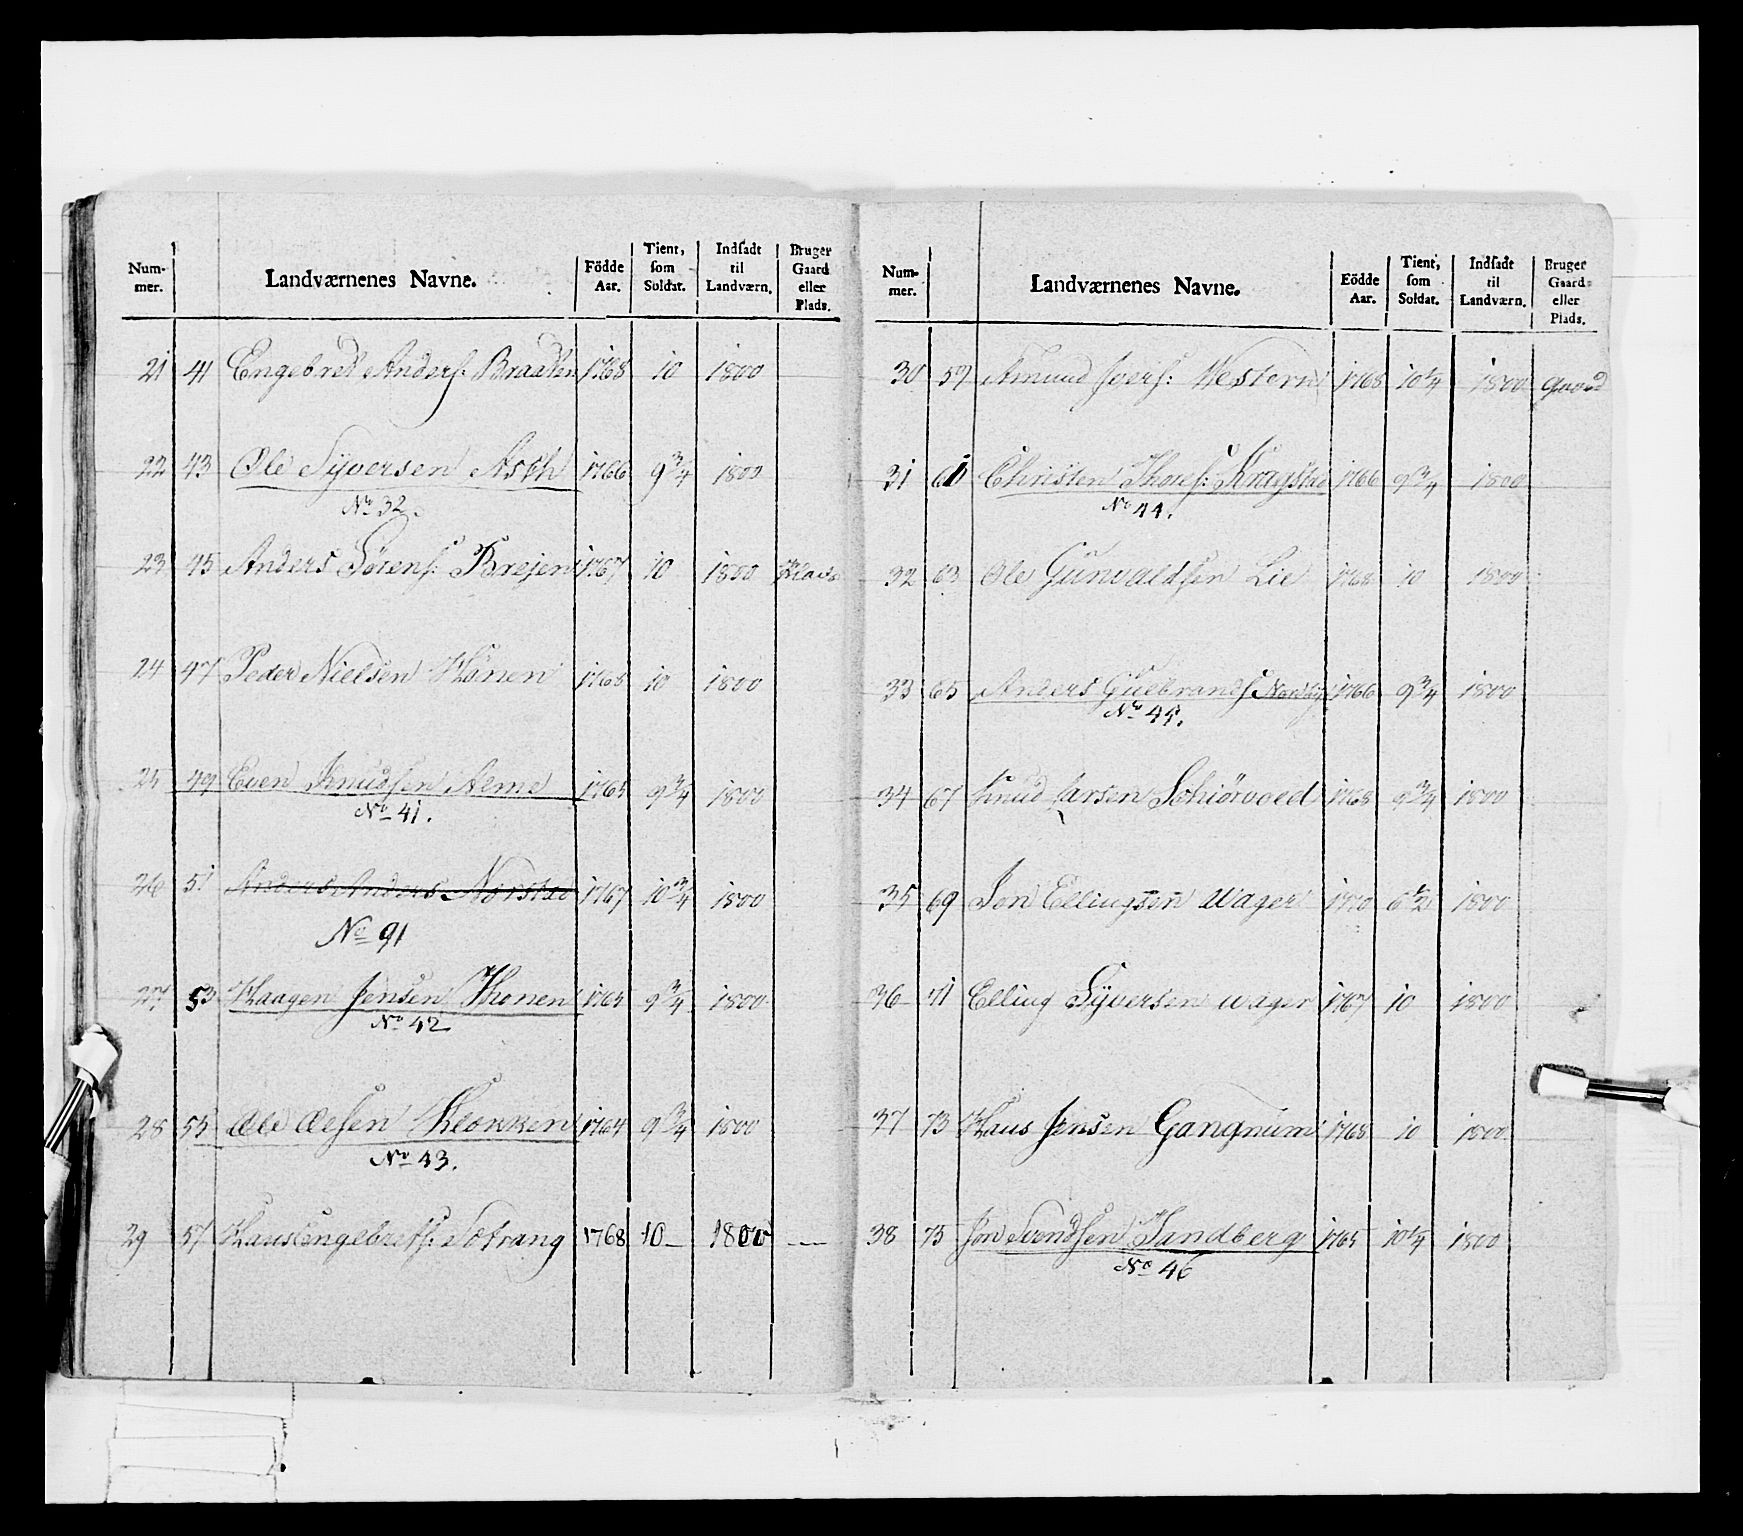 Num-mer. Landværnenes Navne. Födde Aar. Tient, som Soldat. Indsadt til Landværn. Bruger Gaard eller Plads.
21 41 Engebret Anders: Braaten 1768 10 1800
22 43 Ole Syversen Asth 1766 9 3/4 1800
No 32.
23 45 Anders Sörens: Brejen 1767 10 1800 Plads
24 47 Peder Nielsen Hönen 1768 10 1800
25 49 Even Knudsen Alme 1765 9 3/4 1800
No 41.
26 51 Anders Anders. Norstad 1767 10 3/4 1800
No 91
27 53 Haagen Jensen Hönen 1765 9 3/4 1800
No 42
28 55 Ole Olsen Klokken 1764 9 3/4 1800
No 43.
29 57 Hans Engebrets: Sotrang 1768 10 1800
Num-mer. Landværnenes Navne. Födde Aar. Tient, som Soldat. Indsadt til Landværn. Bruger Gaard eller Plads.
30 59 Amund Ivers: Western 1768 10 1/4 1800 Gaard
31 61 Christen Thores: Kragstad 1766 9 3/4 1800
No 44.
32 63 Ole Gunvaldsen Lie 1768 10 1800
33 65 Anders Gulbrands 1766 9 3/4 1800
No 45.
34 67 Knud Larsen Schiörvold 1768 9 3/4 1800
35 69 Jon Ellingsen Wager 1770 6 1/2 1800
36 71 Elling Syversen Wager 1767 10 1800
37 73 Hans Jensen Gangnum 1768 10 1800
38 75 Jon Svendsen Sandberg 1765 10 1/4 1800
No 46